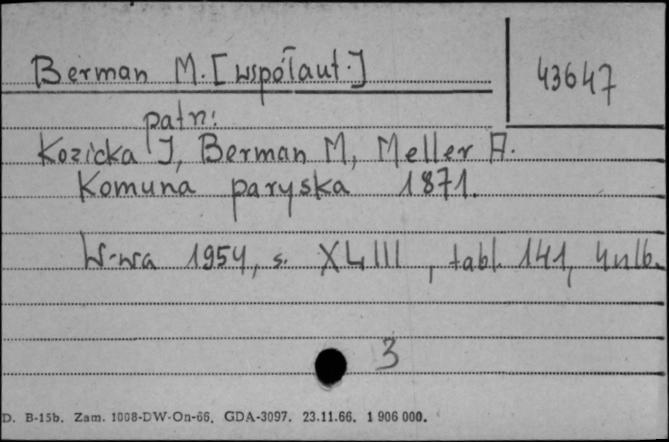 Berman M. [współaut.]
43647
patrz:
Kozicka J, Berman M, Meller A.
Komuna paryska 1871.
W-wa 1954, s. XLIII, tabl. 141, 4 nlb.
3
D. B-15b. Zam. 1008-DW-On-66. GDA-3097. 23.11.66. 1 906 000.